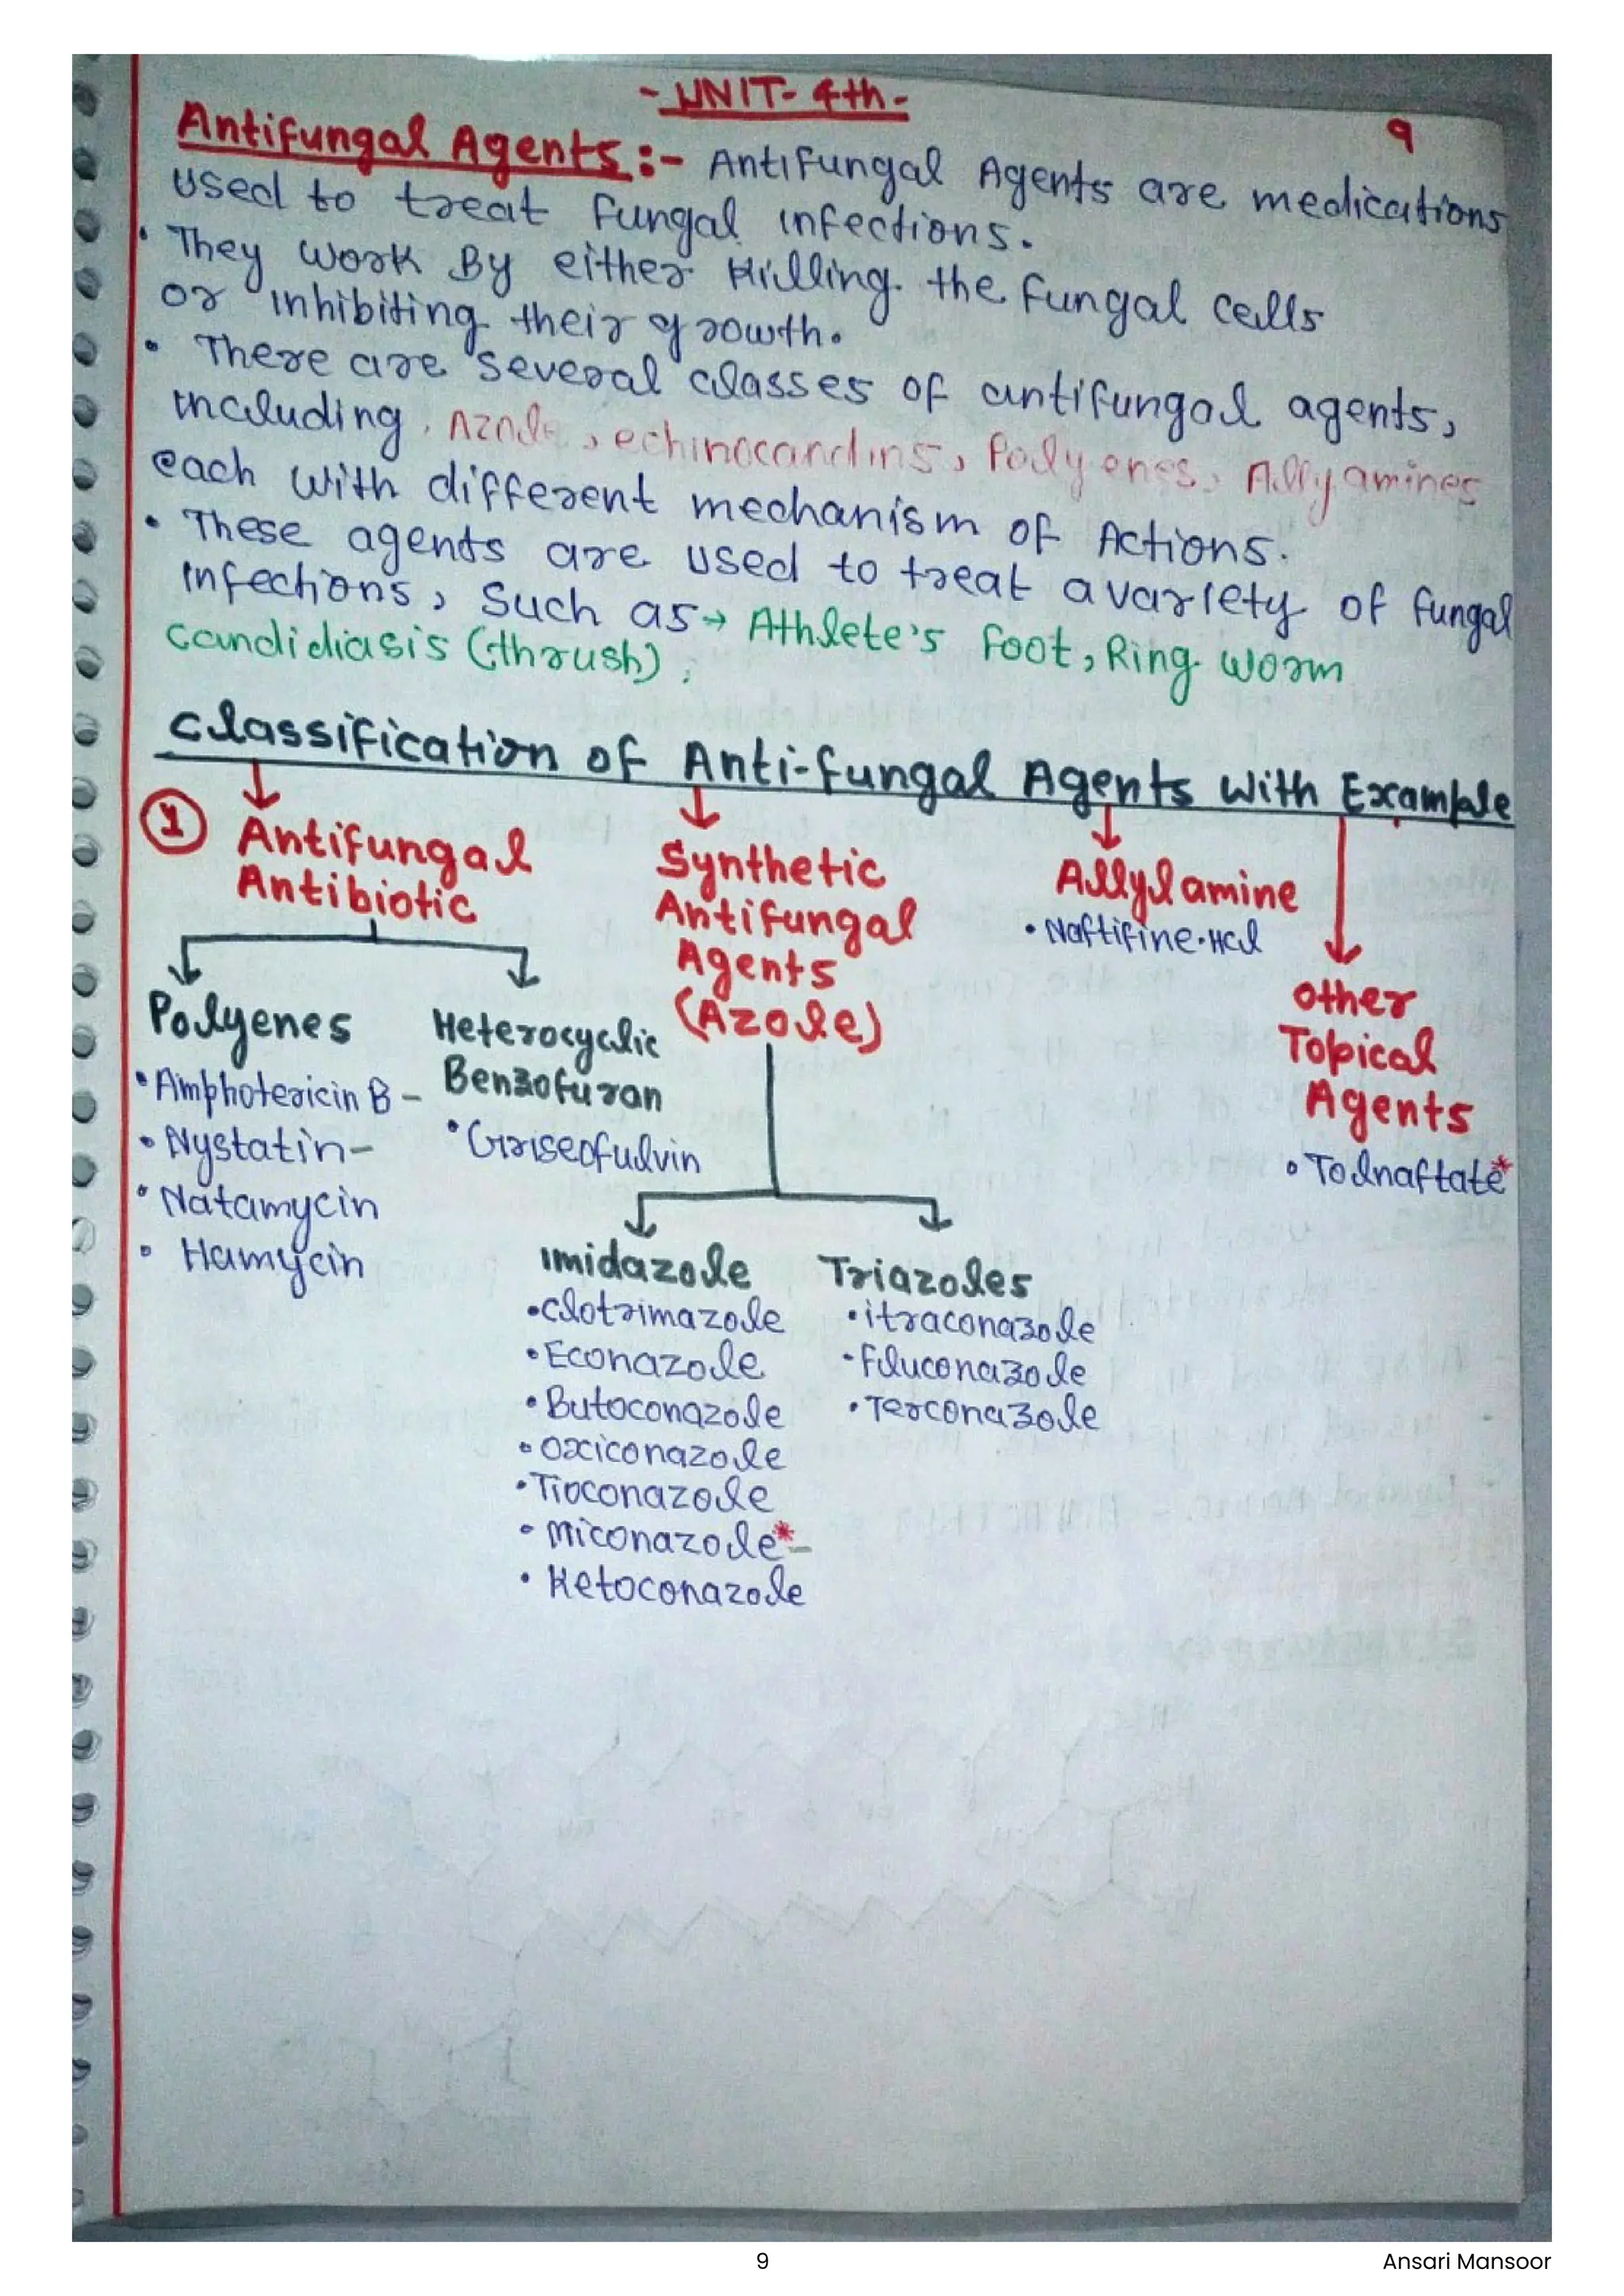 - UNIT- 4th -
9
Antifungal Agents :- Antifungal Agents are medications
used to treat fungal infections.
• They work By either killing the fungal cells
or inhibiting their growth.
• There are several classes of antifungal agents,
including, Azole, echinocandins, Polyenes, Allyamines
each with different mechanism of Actions.
• These agents are used to treat a variety of fungal
infections, such as → Athlete's foot, Ring worm
candidiasis (thrush),
Classification of Anti-fungal Agents with Example
1 Antifungal
Antibiotic
Polyenes
• Amphotericin B -
• Nystatin -
• Natamycin
• Hamycin
Heterocyclic
Benzofuran
• Griseofulvin
Synthetic
Antifungal
Agents
(Azole)
Imidazole
• Clotrimazole
• Econazole
• Butoconazole
• Oxiconazole
• Tioconazole
• Miconazole* -
• Ketoconazole
Triazoles
• itraconazole
• Fluconazole
• Terconazole
Allylamine
• Naftifine.Hcl
Other
Topical
Agents
• Tolnaftate*
9
Ansari Mansoor